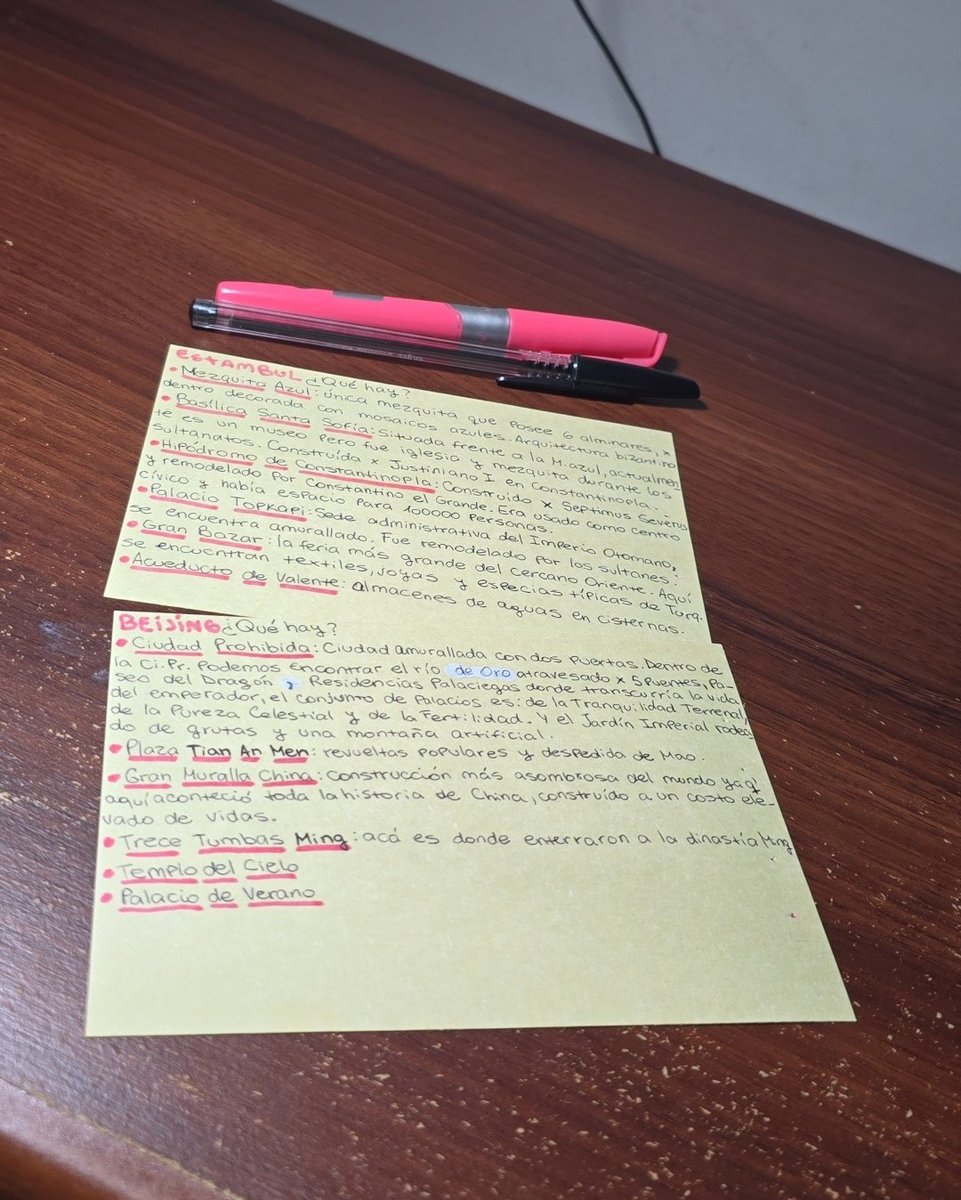 ESTAMBUL ¿Qué hay?
• Mezquita Azul: única mezquita que posee 6 alminares, x
dentro decorada con mosaicos azules. Arquitectura bizantina
• Basílica Santa Sofía: Situada frente a la M. azul, actualmen
te es un museo pero fue iglesia y mezquita durante los
sultanatos. Construída x Justiniano I en Constantinopla.
• Hipódromo de Constantinopla: Construído x Septimus Severus
y remodelado por Constantino el Grande. Era usado como centro
cívico y había espacio para 100000 personas.
• Palacio Topkapi: Sede administrativa del Imperio Otomano,
se encuentra amurallado. Fue remodelado por los sultanes.
• Gran Bazar: la feria más grande del Cercano Oriente. Aquí
se encuentran textiles, joyas y especias típicas de Turq.
• Acueducto de Valente: almacenes de aguas en cisternas.
BEIJING ¿Qué hay?
• Ciudad Prohibida: Ciudad amurallada con dos puertas. Dentro de
la Ci. Pr. Podemos encontrar el río de Oro atravesado x 5 puentes, Pa-
seo del Dragón, Residencias Palaciegas donde transcurría la vida
del emperador, el conjunto de Palacios es: de la Tranquilidad Terrenal,
de la Pureza Celestial y de la Fertilidad. Y el Jardín Imperial rodea
do de grutas y una montaña artificial.
• Plaza Tian An Men: revueltas populares y despedida de Mao.
• Gran Muralla China: Construcción más asombrosa del mundo ya q'
aquí aconteció toda la historia de China, construído a un costo ele-
vado de vidas.
• Trece Tumbas Ming: acá es donde enterraron a la dinastía Ming
• Templo del Cielo
• Palacio de Verano